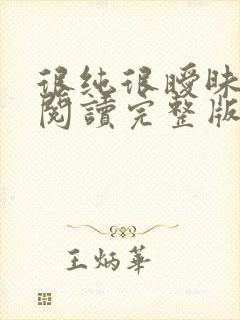 很纯很暧昧
閱讀完整版
王炳華